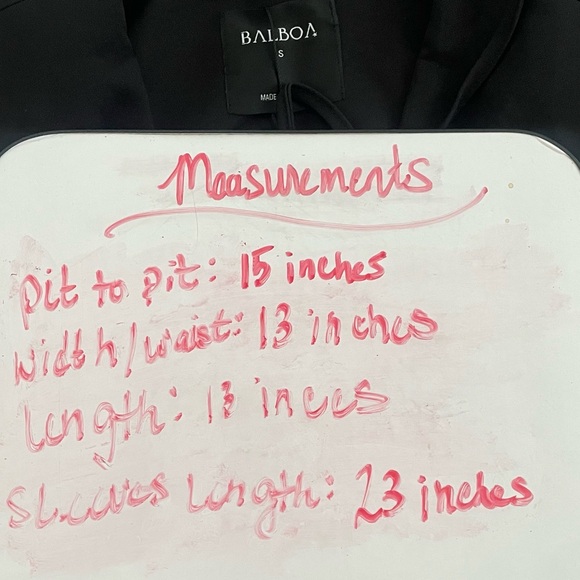 BALBOA
S
MADE
Measurements
pit to pit: 15 inches
width/waist: 13 inches
Length: 13 inces
Sleeves Length: 23 inches